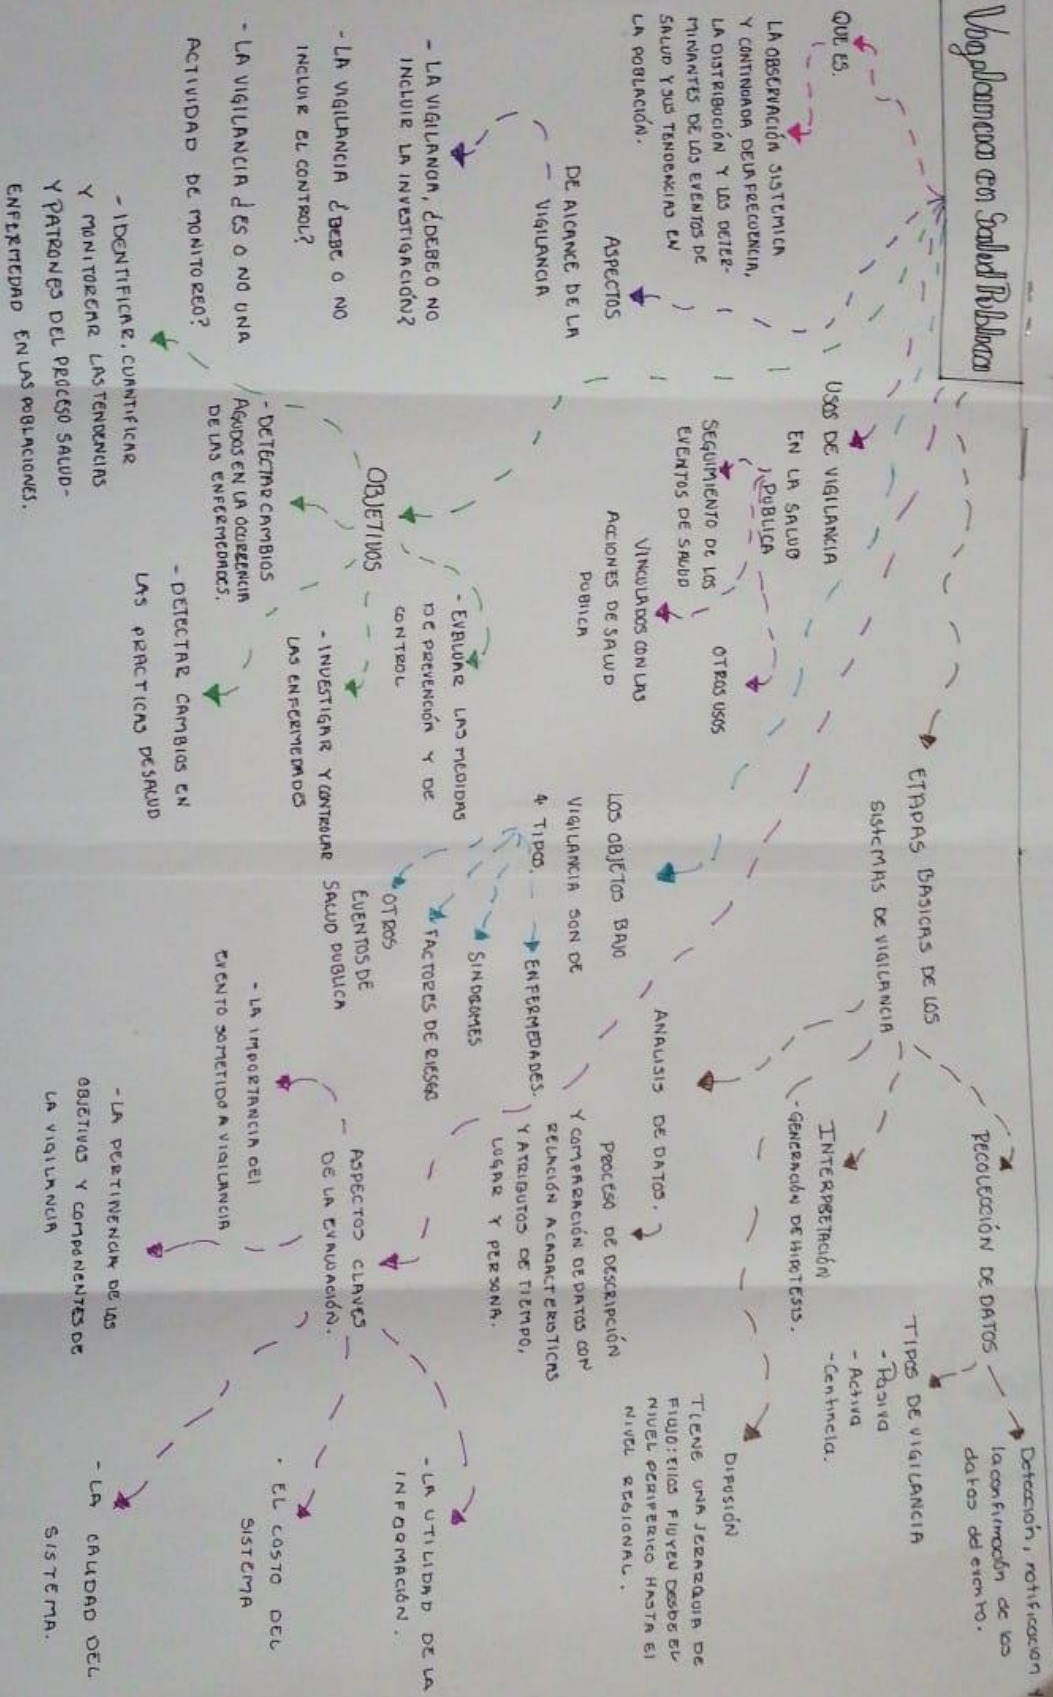 Vigilancia en Salud Publica
QUE ES.
LA OBSERVACIÓN SISTEMICA
Y CONTINUADA DE LA FRECUENCIA,
LA DISTRIBUCIÓN Y LOS DETER-
MINANTES DE LOS EVENTOS DE
SALUD Y SUS TENDENCIAS EN
LA POBLACIÓN.
ASPECTOS
DE ALCANCE DE LA
VIGILANCIA
- LA VIGILANCIA, ¿DEBE O NO
INCLUIR LA INVESTIGACIÓN?
- LA VIGILANCIA ¿DEBE O NO
INCLUIR EL CONTROL?
- LA VIGILANCIA ¿ES O NO UNA
ACTIVIDAD DE MONITOREO?
USOS DE VIGILANCIA
EN LA SALUD
PUBLICA
SEGUIMIENTO DE LOS
EVENTOS DE SALUD
VINCULADOS CON LAS
ACCIONES DE SALUD
PUBLICA
OTROS USOS
OBJETIVOS
- EVALUAR LAS MEDIDAS
DE PREVENCIÓN Y DE
CONTROL
- INVESTIGAR Y CONTROLAR
LAS ENFERMEDADES
- DETECTAR CAMBIOS
AGUDOS EN LA OCURRENCIA
DE LAS ENFERMEDADES.
- DETECTAR CAMBIOS EN
LAS PRACTICAS DE SALUD
- IDENTIFICAR, CUANTIFICAR
Y MONITOREAR LAS TENDENCIAS
Y PATRONES DEL PROCESO SALUD-
ENFERMEDAD EN LAS POBLACIONES.
LOS OBJETOS BAJO
VIGILANCIA SON DE
4 TIPOS.
ENFERMEDADES.
SINDROMES
FACTORES DE RIESGO
OTROS
EVENTOS DE
SALUD PUBLICA
ETAPAS BASICAS DE LOS
SISTEMAS DE VIGILANCIA
RECOLECCIÓN DE DATOS
Detección, notificacion y
la confirmación de los
datos del evento.
TIPOS DE VIGILANCIA
- Pasiva
- Activa
- Centinela.
INTERPRETACIÓN
- GENERACIÓN DE HIPOTESIS.
ANALISIS DE DATOS.
PROCESO DE DESCRIPCIÓN
Y COMPARACIÓN DE DATOS CON
RELACIÓN A CARACTERISTICAS
Y ATRIBUTOS DE TIEMPO,
LUGAR Y PERSONA.
DIFUSIÓN
TIENE UNA JERARQUIA DE
FLUJO: ELLOS FLUYEN DESDE EL
NIVEL PERIFERICO HASTA EL
NIVEL REGIONAL.
ASPECTOS CLAVES
DE LA EVALUACIÓN.
- LA IMPORTANCIA DEL
EVENTO SOMETIDO A VIGILANCIA
- LA PERTINENCIA DE LOS
OBJETIVOS Y COMPONENTES DE
LA VIGILANCIA
- LA UTILIDAD DE LA
INFORMACIÓN.
. EL COSTO DEL
SISTEMA
- LA CALIDAD DEL
SISTEMA.